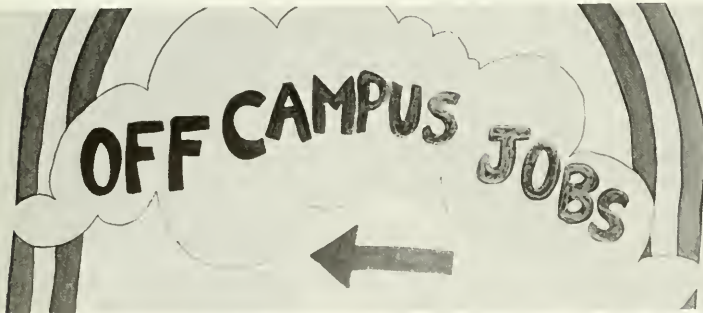 OFF CAMPUS JOBS